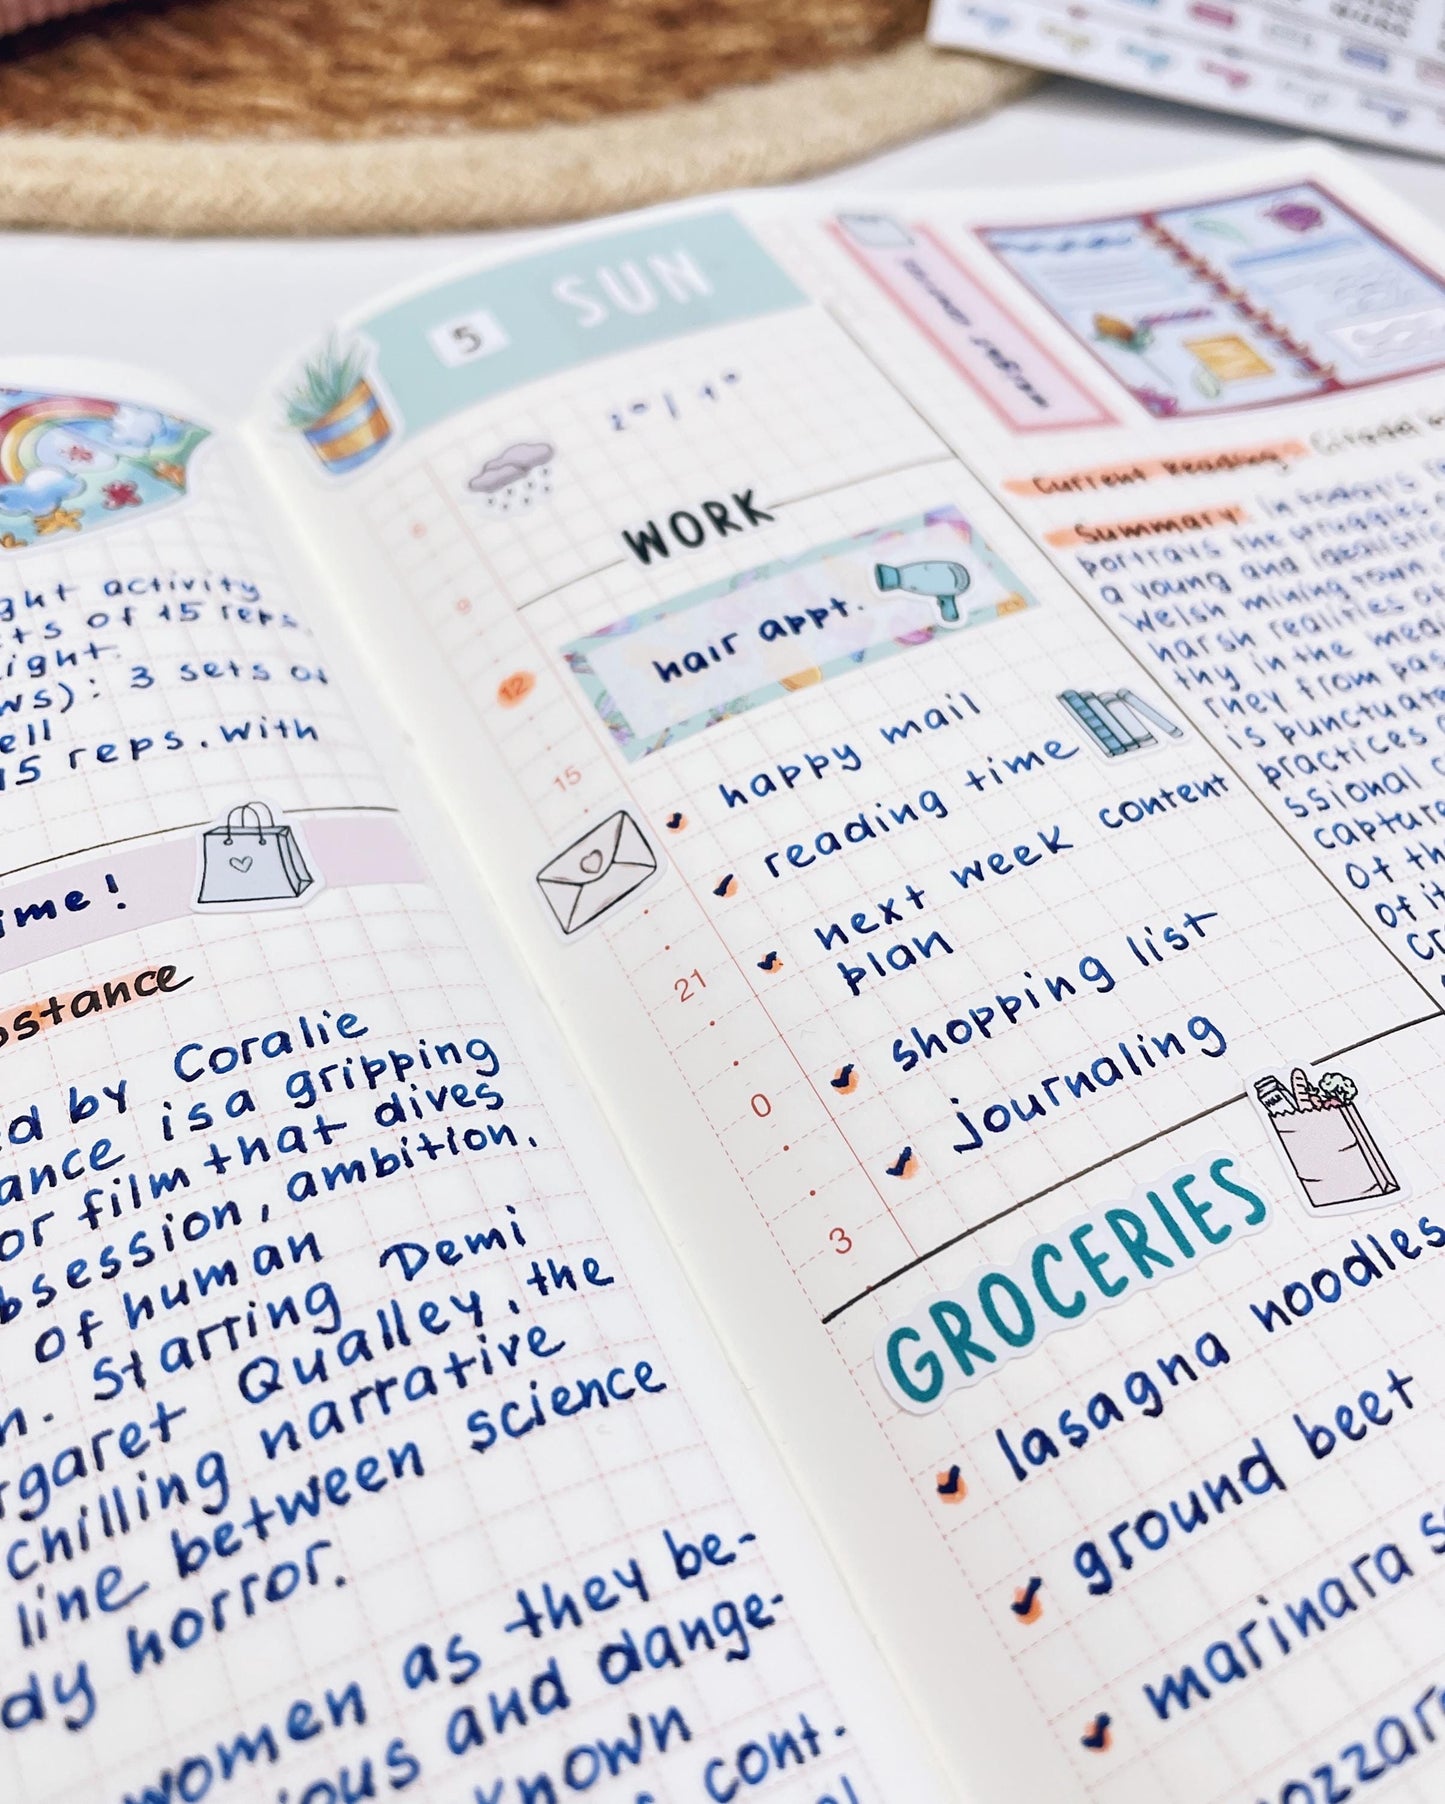 ght activity
ts of 15 reps.
ight.
ws): 3 sets of
ell
15 reps. with
ime!
bstance
ed by Coralie
ance is a gripping
or film that dives
bsession, ambition,
of human
n. Starring Demi
rgaret Qualley, the
chilling narrative
line between science
dy horror.
women as they be-
ious and dange-
known
cont.
5 SUN
2° | -1°
WORK
9
12
15
21
0
3
hair appt.
happy mail
reading time
next week content
plan
shopping list
journaling
GROCERIES
lasagna noodles
ground beet
marinara s
ozzar
Current Reading: Citadel
Summary: In today's
portrays the struggles
a young and idealistic
Welsh mining town.
harsh realities
thy in the med
rney from pas
is punctuate
practices
ssional
capture
of th
of it
cr